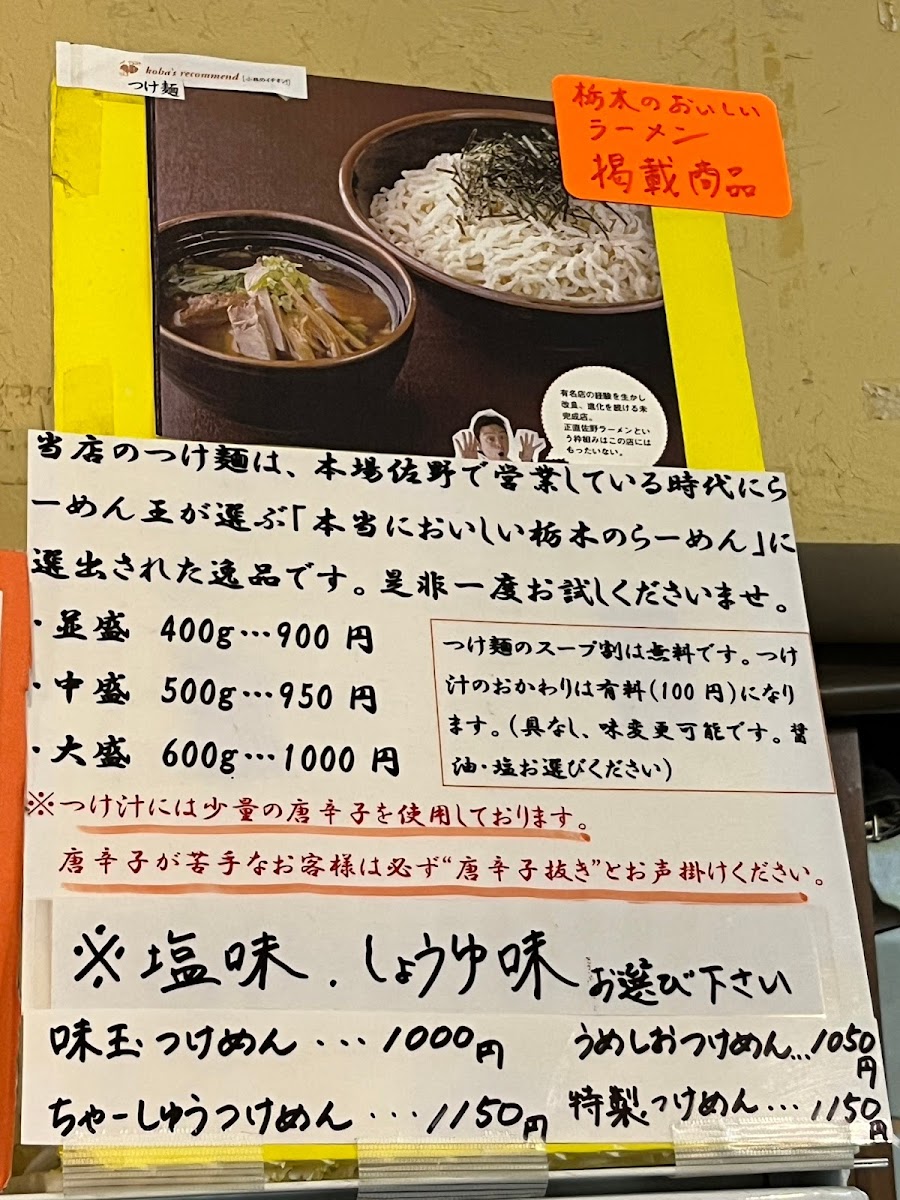 koba's recommend [小林のイチオシ!]
つけ麺
栃木のおいしい
ラーメン
掲載商品
有名店の経験を生かし
改良、進化を続ける未
完成店。
正直佐野ラーメンとい
う枠組みはこの店には
もったいない。
当店のつけ麺は、本場佐野で営業している時代にら
ーめん王が選ぶ「本当においしい栃木のらーめん」に
選出された逸品です。是非一度お試しくださいませ。
・並盛 400g…900 円
・中盛 500g…950 円
・大盛 600g…1000 円
つけ麺のスープ割は無料です。つけ
汁のおかわりは有料(100 円)になり
ます。(具なし、味変更可能です。醤
油・塩お選びください)
※つけ汁には少量の唐辛子を使用しております。
唐辛子が苦手なお客様は必ず“唐辛子抜き”とお声掛けください。
※塩味．しょうゆ味 お選び下さい
味玉つけめん・・・1000円
うめしおつけめん…1050円
ちゃーしゅうつけめん・・・1150円
特製つけめん…1150円